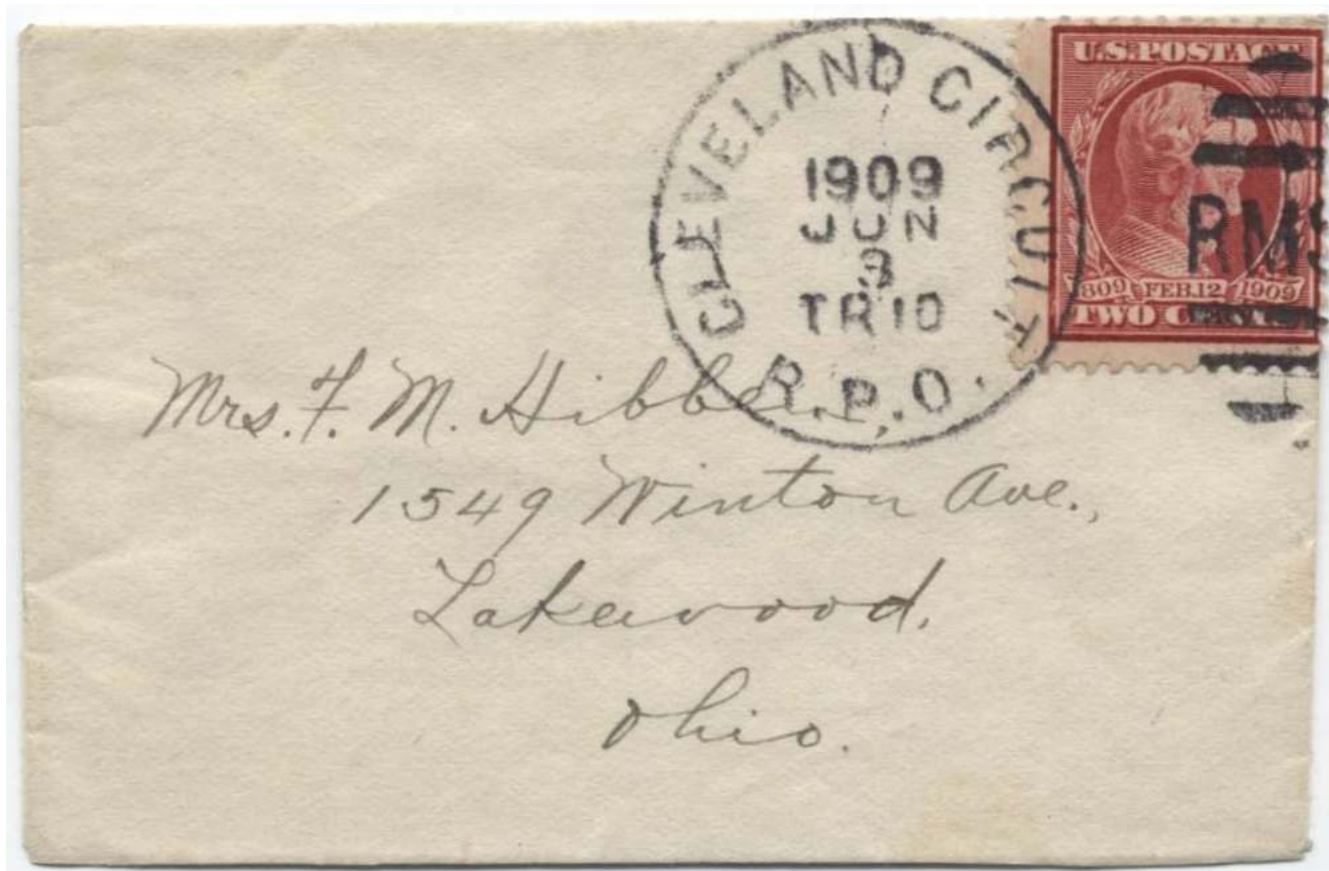 CLEVELAND CIRCUIT
1909
JUN
9
TR 10
R.P.O.
U.S. POSTAGE
1809 FEB. 12 1909
TWO CENTS
RMS
Mrs. F. M. Hibben,
1549 Winton Ave.,
Lakewood,
Ohio.